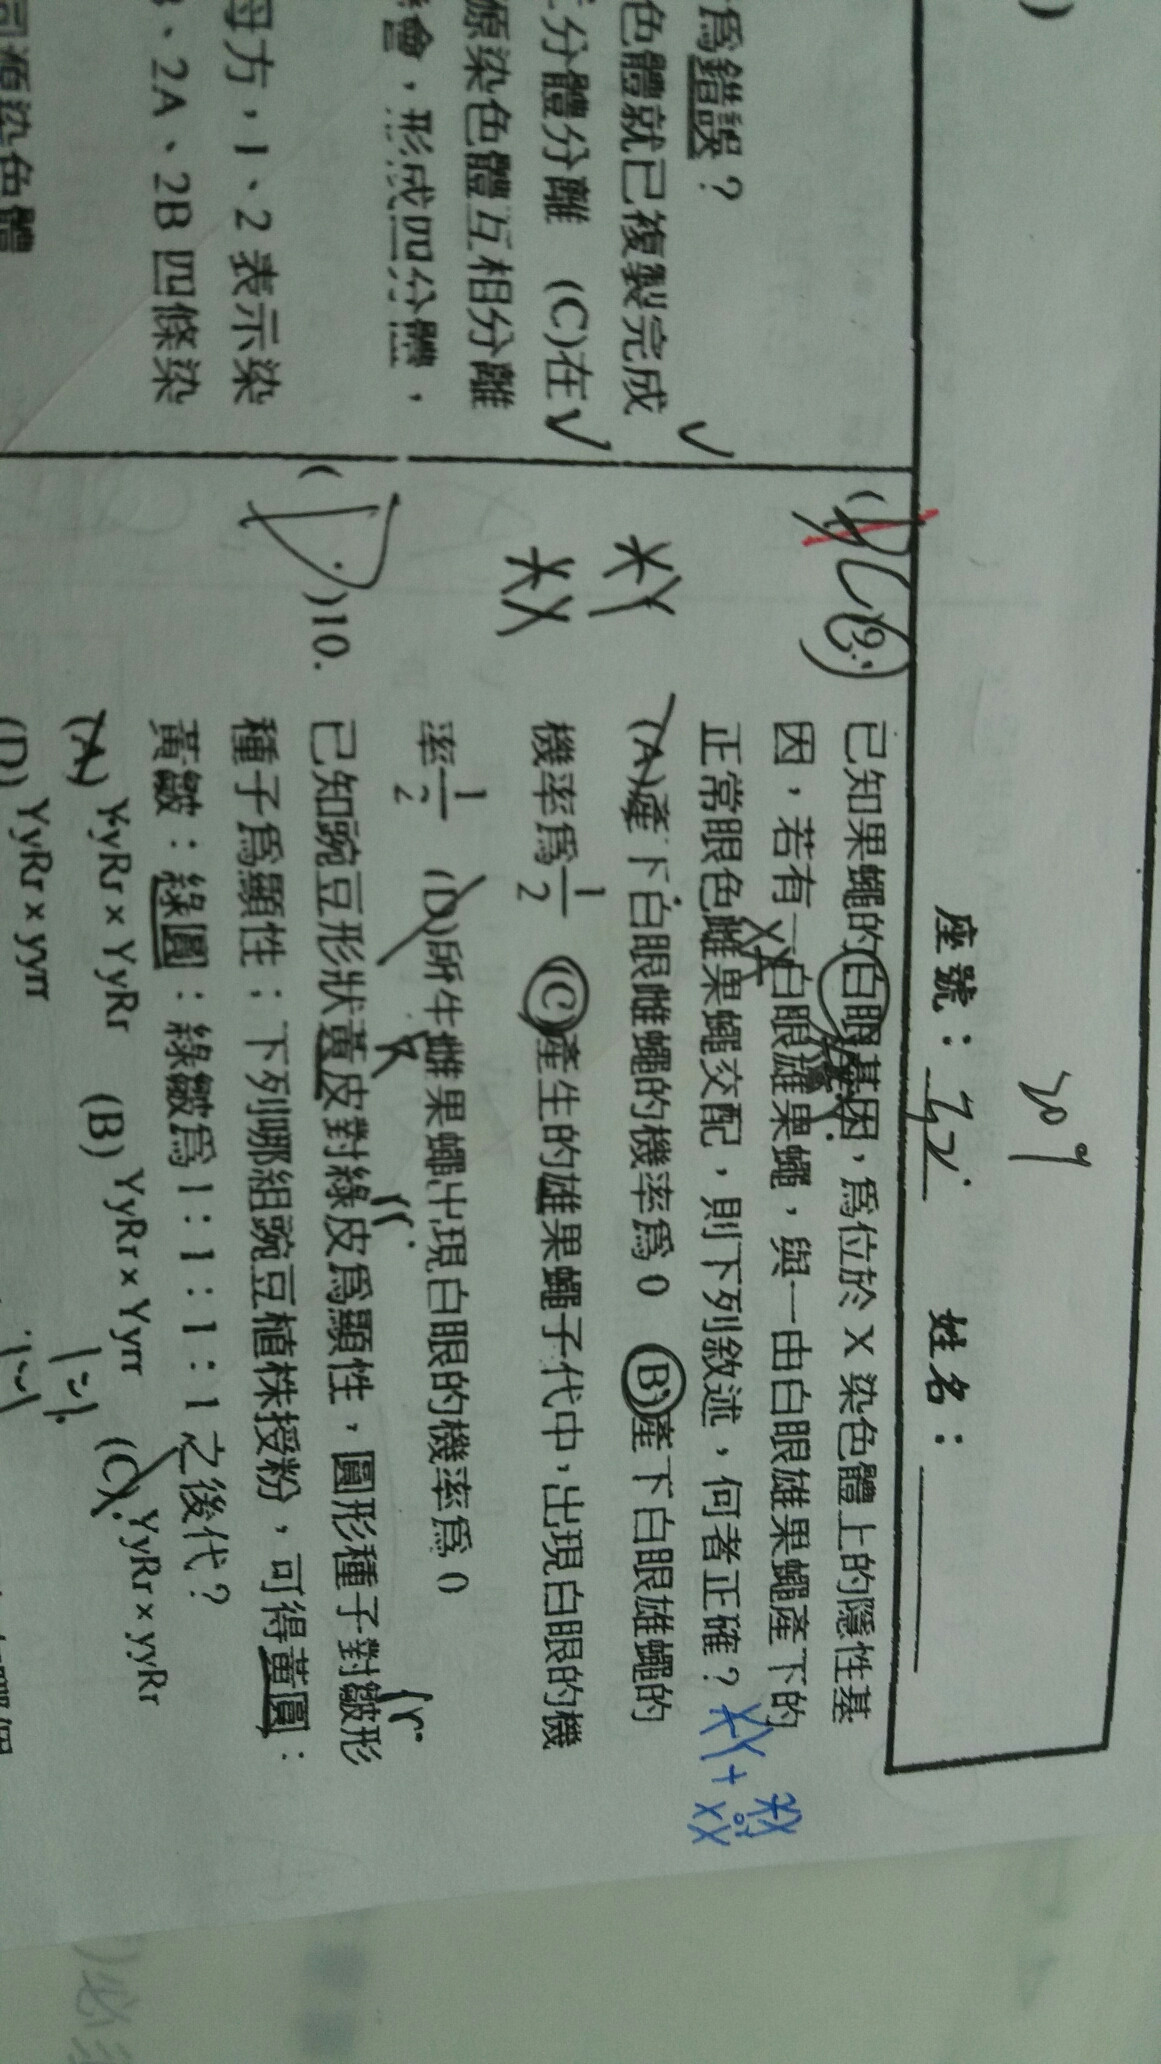 209
座號：32 姓名：
為錯誤？
色體就已複製完成
分體分離 (C)在
源染色體互相分離
會，形成四分體，
母方，1、2 表示染
、2A、2B 四條染
同源染色體
9.
已知果蠅的白眼基因，為位於 X 染色體上的隱性基
因，若有一白眼雄果蠅，與一由白眼雄果蠅產下的
正常眼色雌果蠅交配，則下列敘述，何者正確？
XY + XX
or
(A)產下白眼雌蠅的機率為 0 (B)產下白眼雄蠅的
機率為 1/2 (C)產生的雄果蠅子代中，出現白眼的機
率 1/2 (D)所生雌果蠅出現白眼的機率為 0
XY
XX
( D )10.
已知豌豆形狀黃皮對綠皮為顯性，圓形種子對皺形
種子為顯性；下列哪組豌豆植株授粉，可得黃圓：
黃皺：綠圓：綠皺為 1：1：1：1 之後代？
(A) YyRr × YyRr (B) YyRr × Yyrr (C) YyRr × yyRr
(D) YyRr × yyrr
1=1